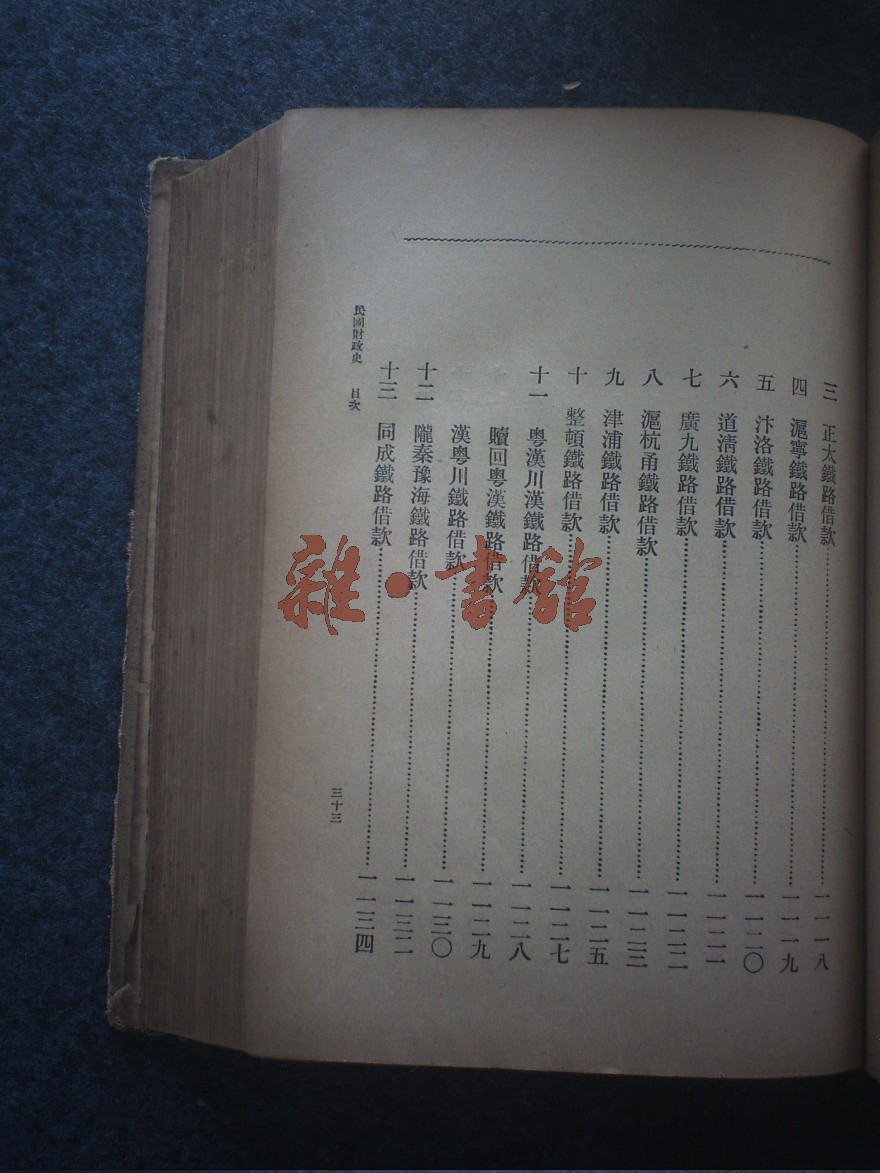 三　正太鐵路借款…………一一一八
四　滬寧鐵路借款…………一一一九
五　汴洛鐵路借款…………一一二〇
六　道淸鐵路借款…………一一二一
七　廣九鐵路借款…………一一二二
八　滬杭甬鐵路借款…………一一二三
九　津浦鐵路借款…………一一二五
十　整頓鐵路借款…………一一二七
十一　粵漢川漢鐵路借款…………一一二八
贖回粵漢鐵路借款…………一一二九
漢粵川鐵路借款…………一一三〇
十二　隴秦豫海鐵路借款…………一一三二
十三　同成鐵路借款…………一一三四
民國財政史　目次
三十三
雜·書館